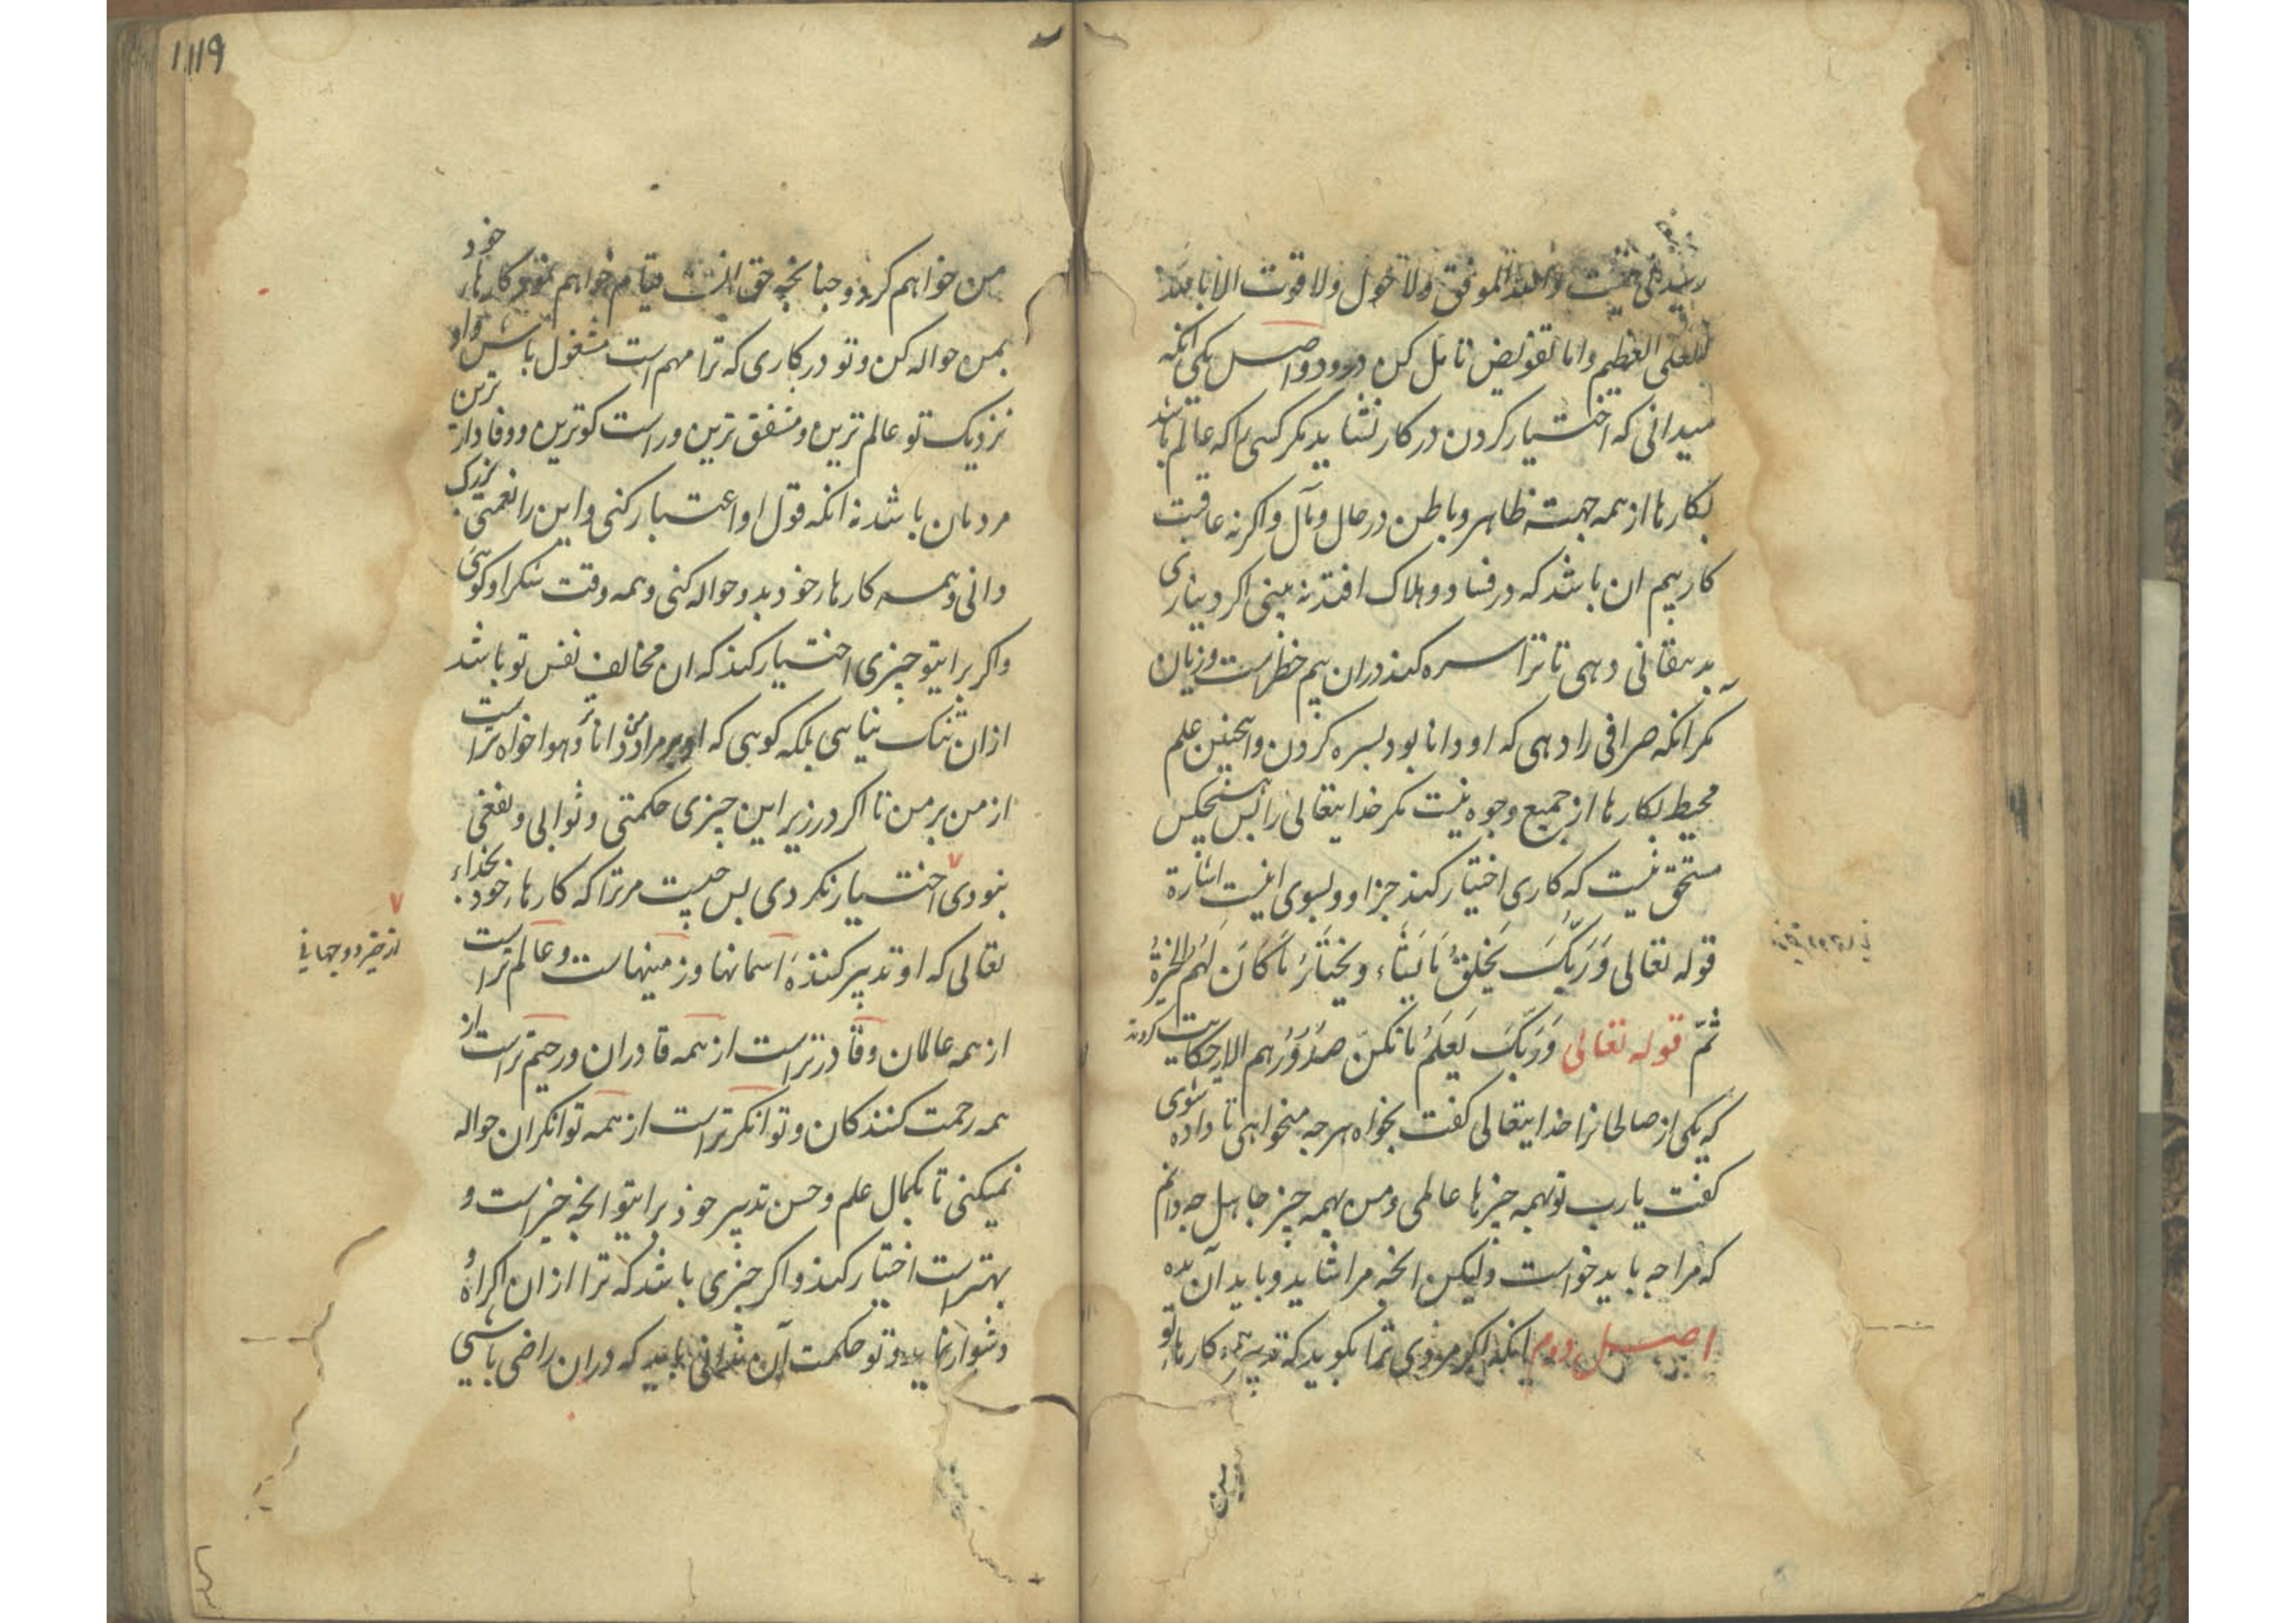 الموفق ولا حول ولا قوت الا بالله
العلی العظیم واما تفویض تامل کن درو دو اصل یکی انکه
میدانی که اختیار کردن در کار نشاید مکر کسی را که عالم باشد
بکارها از همه جهت ظاهر و باطن در حال و مآل واکر نه عاقبت
کار بیم ان باشد که در فساد و هلاک افتد نه بینی اکر دیناری
بدهقانی دهی تا ترا سره کند دران بیم خطراست و زیان
مکر انکه صرافی را دهی که او دانا بود بسره کردن و اینچنین علم
محیط بکارها از جمیع وجوه نیست مکر خدایتعالی را پس هیچکس
مستحق نیست که کاری اختیار کند جز او و بسوی اینست اشارة
قوله تعالی وَرَبُّكَ یَخْلُقُ مَا یَشَاء وَیَخْتَارُ مَا کَانَ لَهُمُ الخِیَرَةُ
ثُمّ قوله تعالی وَرَبُّكَ یَعْلَمُ مَا تُکِنّ صُدُوْرُهم الایه حکایت کردند
که یکی از صالحانرا خدایتعالی کفت بخواه هرجه میخواهی تا داده شوی
کفت یارب تو بهمه چیزها عالمی و من بهمه چیز جاهل جه دانم
که مرا جه باید خواست ولیکن انجه مرا شاید و باید آن بده
اصل دوم انکه اکر مردی ترا بکوید که تدبیر همه کارها تو
من خواهم کرد و جنانچه حق انست قیام خواهم نمود کارهاء خود
بمن حواله کن و تو در کاری که ترا مهم است مشغول باش و او
نزدیک تو عالم ترین و مشفق ترین و راست کوترین و وفادار ترین
مردمان باشد نه انکه قول او اعتبار کنی و این را نعمتی بزرک
دانی و همه کارهاء خود بدو حواله کنی و همه وقت شکر او کوئی
واکر برایتو چیزی اختیار کند که ان مخالف نفس تو باشد
ازان تنک نیائی بلکه کوئی که او بر مراد من داناتر و هواخواه تراست
از من بر من تا اکر در زیر این چیزی حکمتی و ثوابی و نفعی
نبودی اختیار نکردی پس چیست مر ترا که کارهاء خود بخداء
تعالی که او تدبیر کننده اسمانها و زمینهاست و عالم تراست
از خیر دو جهانی
از همه عالمان و قادرتراست از همه قادران و رحیم تراست از
همه رحمت کنندکان و توانکرتراست از همه توانکران حواله
نمیکنی تا بکمال علم و حسن تدبیر خود برایتو انچه خیراست و
بهتراست اختیار کند واکر چیزی باشد که ترا ازان اکراه و
دشوار نماید و تو حکمت آن ندانی باید که دران راضی باشی